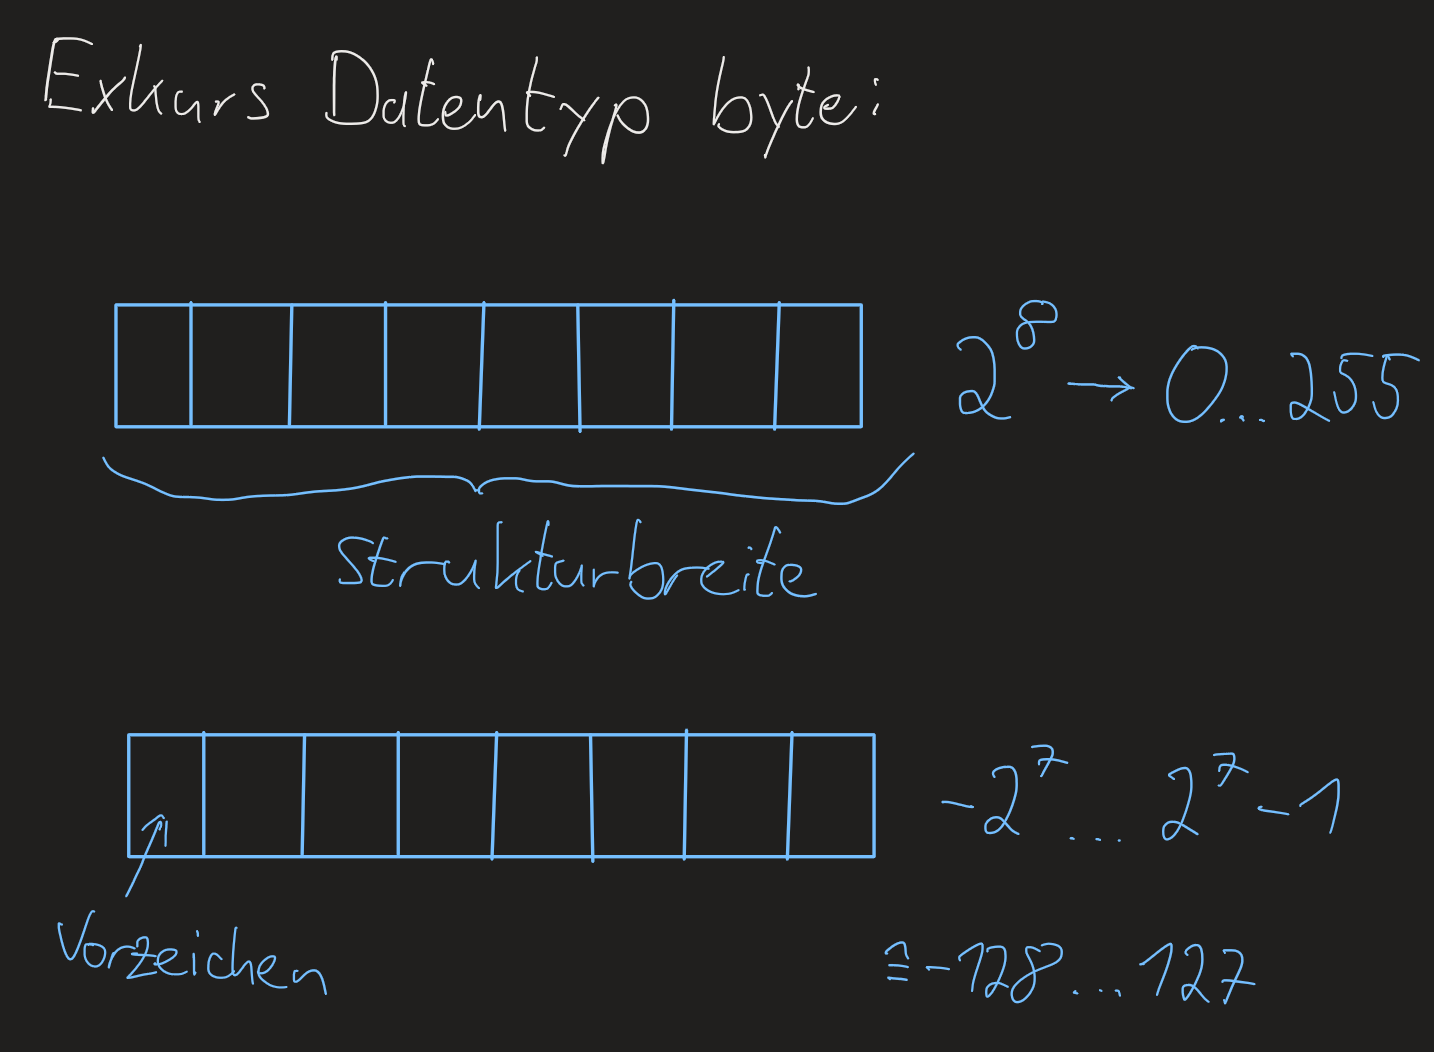 Exkurs Datentyp byte:
2⁸ → 0...255
Strukturbreite
-2⁷ ... 2⁷-1
Vorzeichen
≙ -128...127